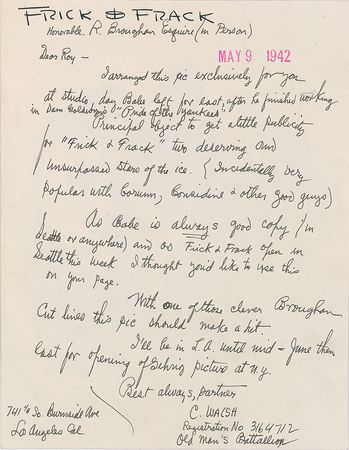 FRICK & FRACK
Honorable. R. Broughan Esquire (in Person)
MAY 9 1942
Dear Roy —
I arranged this pic exclusively for you
at studio, day Babe left for East, after he finished working
in Sam Goldwyn's "Pride of the Yankees"
Principal object to get a little publicity
for "Frick & Frack" two deserving and
unsurpassed stars of the ice. (Incidentally very
popular with Corum, Considine & other good guys)
As Babe is always good copy (in
Seattle or anywhere) and as Frick & Frack open in
Seattle this week I thought you'd like to use this
on your page.
With one of those clever Broughan
Cut lines this pic should make a hit.
I'll be in L.A. until mid-June then
East for opening of Gehrig picture at N.Y.
Best always, partner
C. WALSH
741 1/2 So. Burnside Ave
Los Angeles Cal
Registration No 3164712
Old Man's Battallion